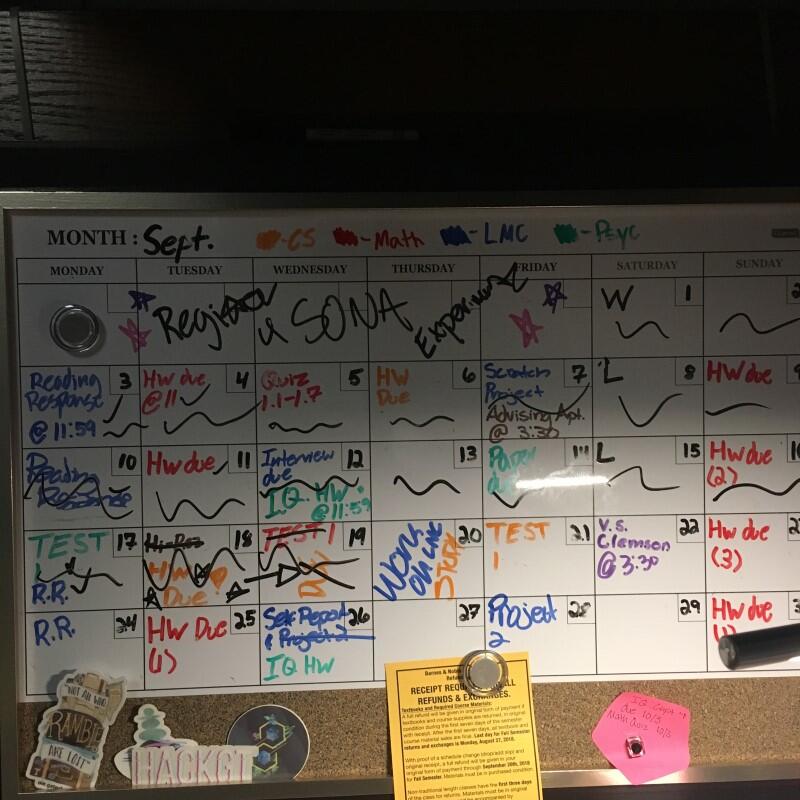 MONTH : Sept.
-CS -Math -LMC -Psyc
MONDAY TUESDAY WEDNESDAY THURSDAY FRIDAY SATURDAY SUNDAY
Register 4 SONA Experiment
W 1
Reading Response @ 11:59 3
HW due @ 11 4
Quiz 1.1-1.7 5
HW Due 6
Scratch Project 7
Advising Apt. @ 3:30
L 8
HW due
Reading Response 10
Hw due 11
Interview due 12
I.Q. HW @ 11:59
13
Paper due 14
L 15
HW due (2)
TEST 1 17
R.R.
18
HW Due
TEST 1 19
Due
Work on LMC 20
STUDY
TEST 1 21
V.S. Clemson @ 3:30 22
HW due (3)
R.R. 24
HW Due (1) 25
Self Report & Project 2 26
IQ HW
27
Project 2 28
29
HW due
NOT ALL WHO
ARE LOST
HACKGT
Barnes & Noble
RECEIPT
REFUNDS & EXCHANGES.
Textbooks and Required Course Materials:
A full refund will be given in original form of payment if
textbooks and course supplies are returned, in original
condition during the first seven days of the semester
with receipt. After the first seven days, all textbook and
course material sales are final. Last day for Fall Semester
returns and exchanges is Monday, August 27, 2018.
With proof of a schedule change (drop/add slip) and
original receipt, a full refund will be given in your
original form of payment through September 20th, 2018
for Fall Semester. Materials must be in purchased condition.
Non-traditional length classes have the first three days
of the class for returns. Materials must be in original
Due 10/5
Math Quiz 10/3